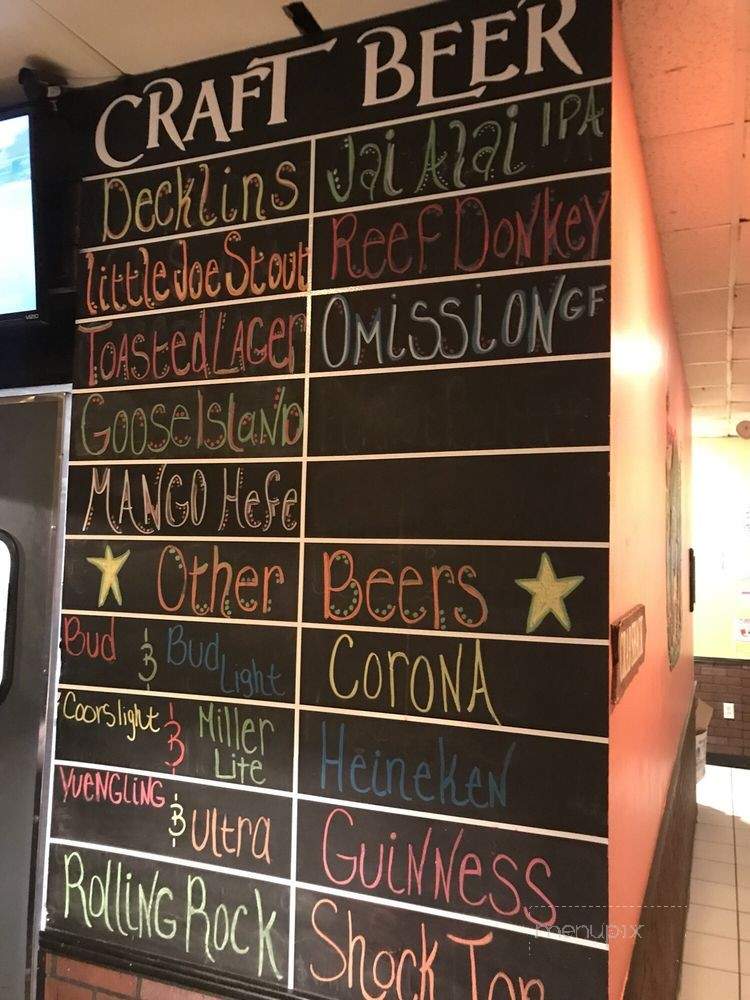 CRAFT BEER
Decklins
Jai Alai IPA
Little Joe Stout
Reef Donkey
Toasted Lager
Omission GF
Goose Island
Mango Hefe
Other Beers
Bud & Bud Light
Corona
Coorslight & Miller Lite
Heineken
Yuengling & Ultra
Guinness
Rolling Rock
Shock Top
VIZIO
menupix